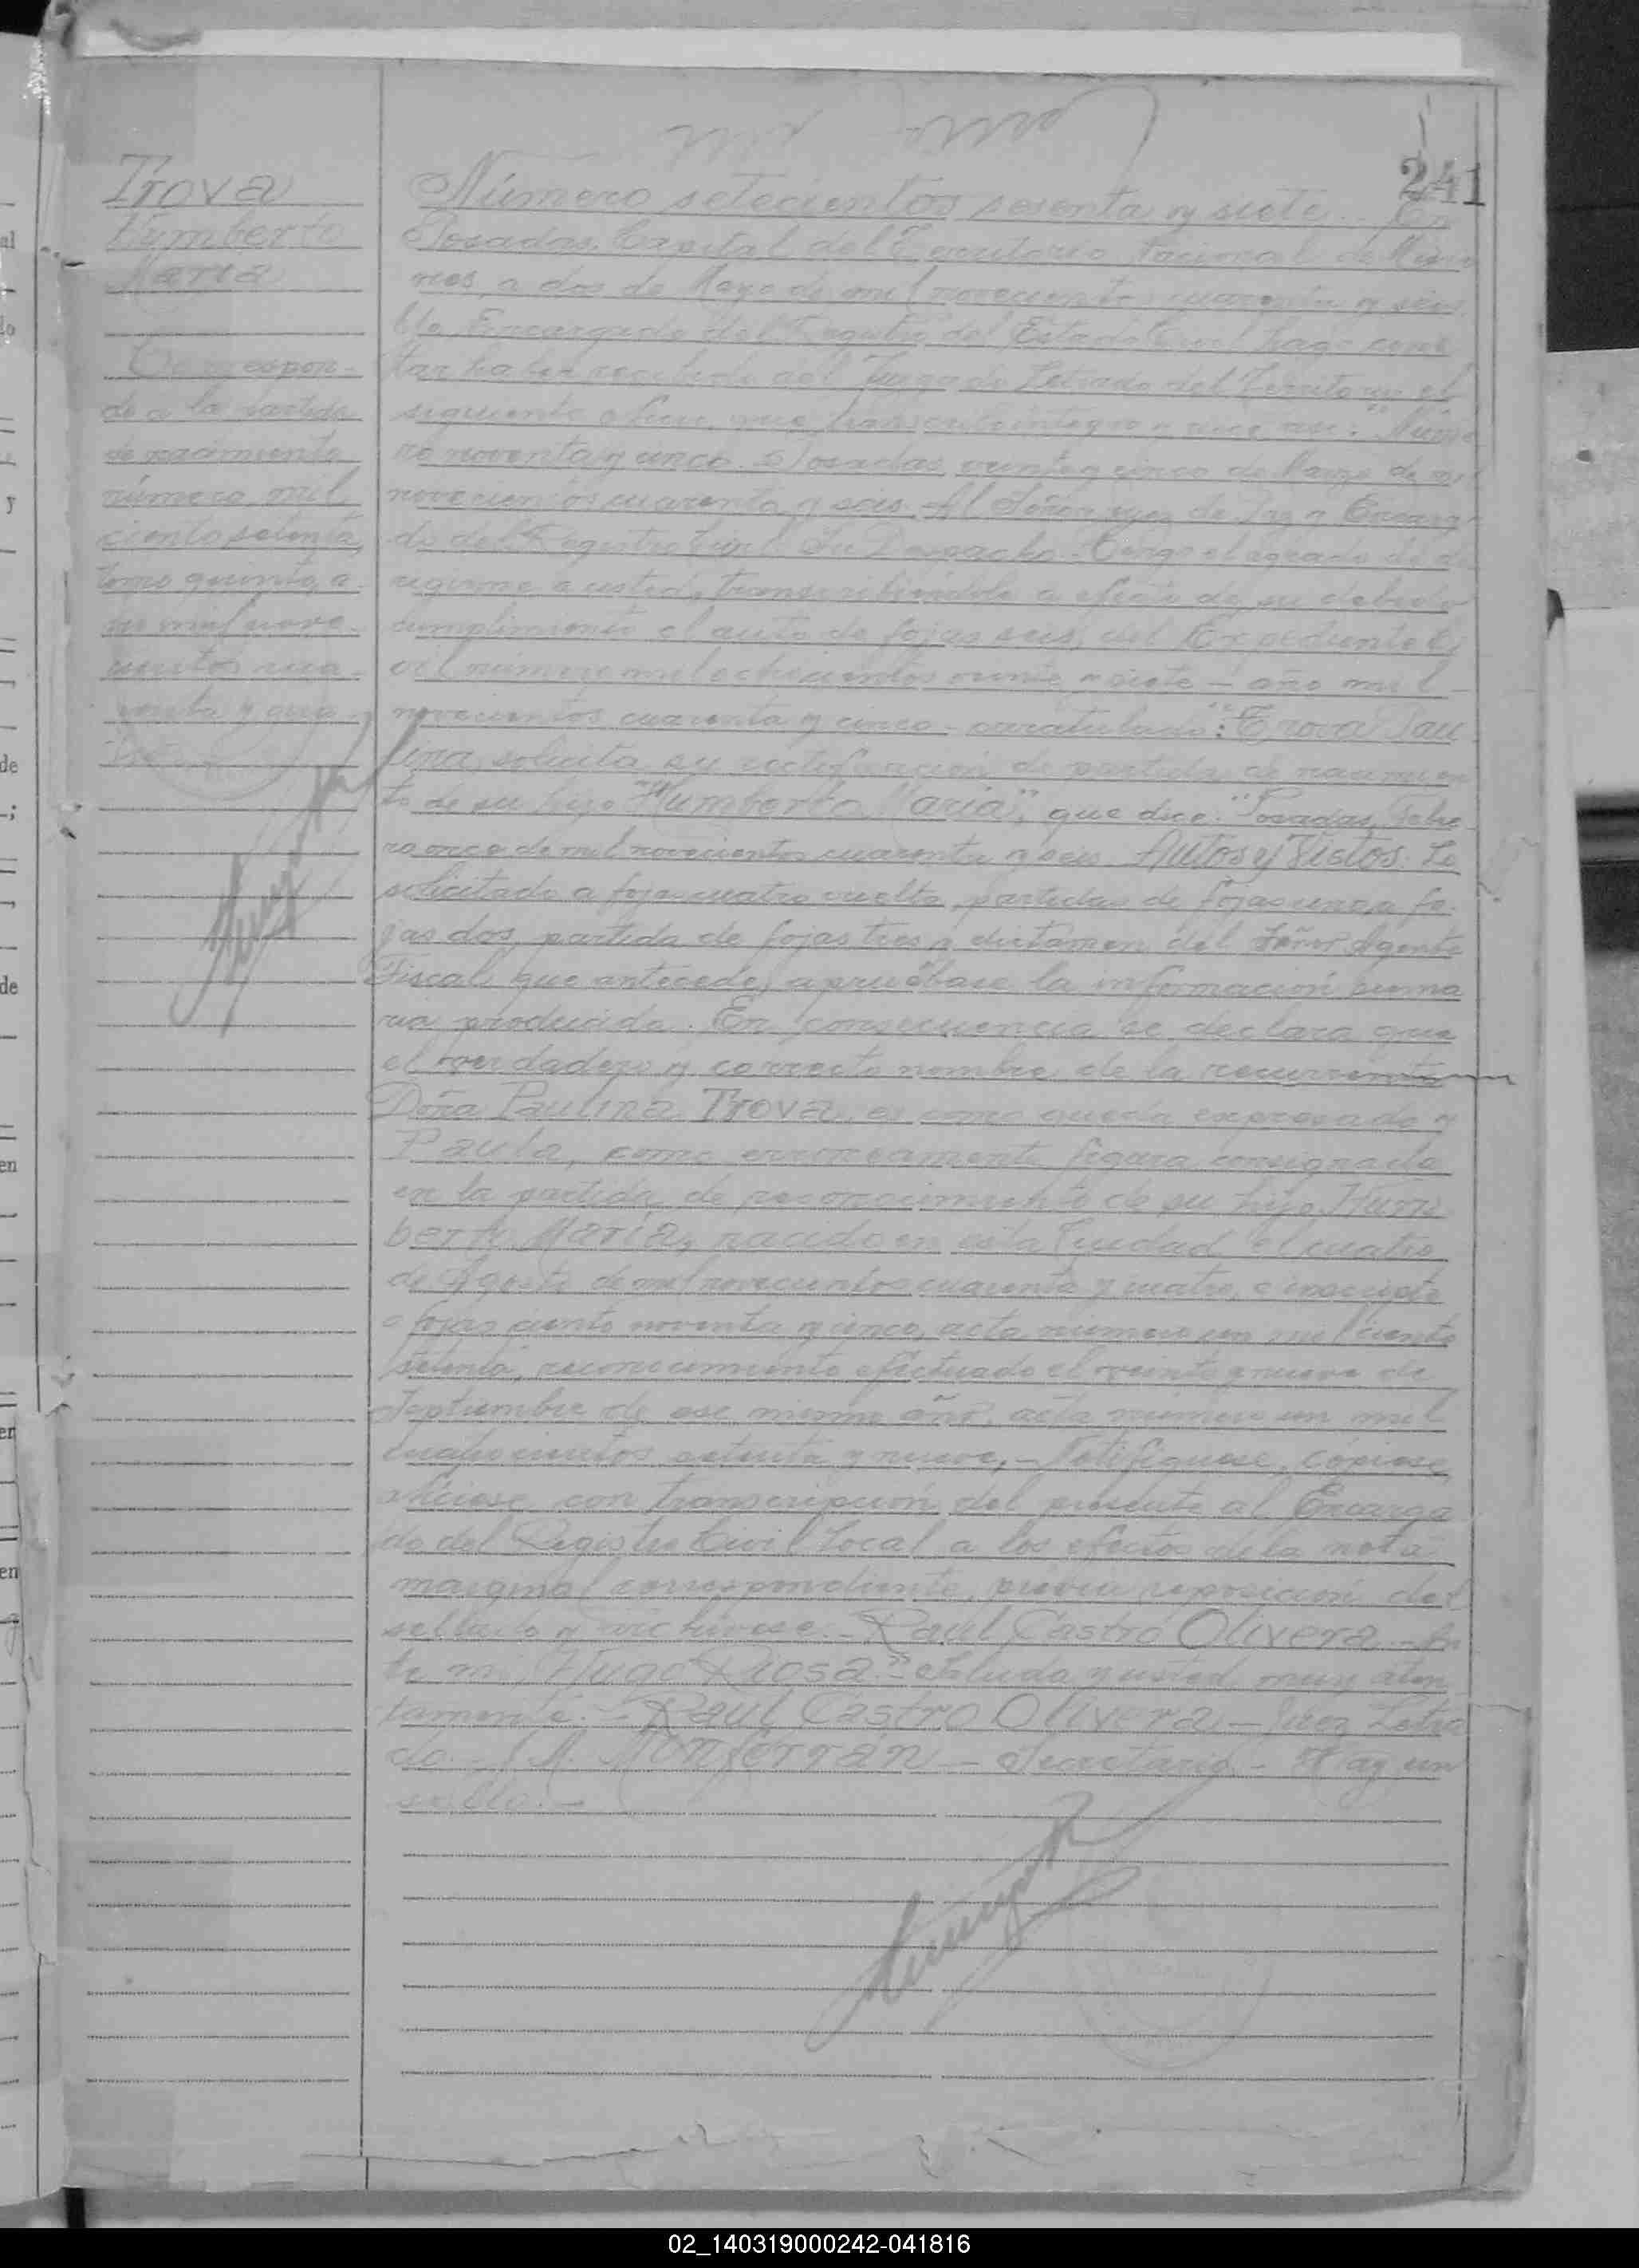 241
Trova
Humberto
Maria
Correspon-
de a la partida
de nacimiento
número mil
ciento setenta,
tomo quinto, a-
ño mil nove-
cientos cua-
renta y cua-
Número setecientos sesenta y siete. En
Posadas, Capital del Territorio Nacional de Misio
nes, a dos de Mayo de mil novecientos cuarenta y seis
Encargado del Registro del Estado Civil hago cons
tar haber recibido del Juzgado Letrado del Territorio el
siguiente oficio, que transcribo íntegro y dice así: "Núme
ro noventa y cinco. Posadas, veinte y cinco de Marzo de mil
novecientos cuarenta y seis. Al Señor Juez de Paz y Encarga
do del Registro Civil. Su Despacho. Tengo el agrado de di
rigirme a usted, transcribiéndole a efecto de su debido
cumplimiento el auto de fojas seis, del Expediente Ci
vil número mil ochocientos veinte y siete - año mil
novecientos cuarenta y cinco - caratulado: "Trova Pau
lina, solicita su rectificación de partida de nacimien
to de su hijo Humberto Maria", que dice: "Posadas, Febre
ro once de mil novecientos cuarenta y seis. Autos y Vistos: Lo
solicitado a fojas cuatro vuelta, partidas de fojas uno, a fo-
jas dos, partida de fojas tres y dictamen del Señor Agente
Fiscal que antecede, apruébase la información suma
ria producida. En consecuencia se declara que
el verdadero y correcto nombre de la recurrente
Doña Paulina Trova, es como queda expresado y
Paula, como erróneamente figura consignado
en la partida de reconocimiento de su hijo Hum
berto Maria, nacido en esta Ciudad el cuatro
de Agosto de mil novecientos cuarenta y cuatro, e inscripto
a fojas ciento noventa y cinco, acta número un mil ciento
setenta, reconocimiento efectuado el veinte y nueve de
Septiembre de ese mismo año, acta número un mil
cuatrocientos setenta y nueve. - Notifíquese, cópiese,
ofíciese con transcripción del presente al Encarga
do del Registro Civil Local a los efectos de la nota
marginal correspondiente, previa reposición del
sellado y archívese. - Raul Castro Olivera - An
te mi, Hugo Rosa." Saludo a usted muy aten
tamente. - Raul Castro Olivera - Juez Letra
do. - M. Monferrán - Secretario. - Hay un
sello. -
02_140319000242-041816